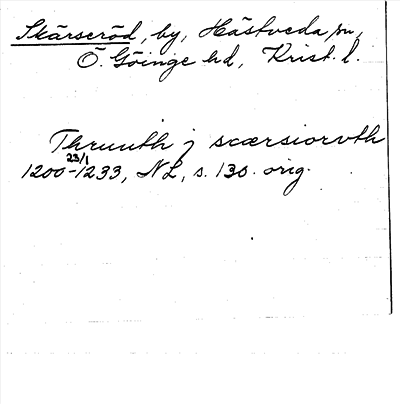 Skärseröd, by, Hästveda sn,
Ö. Göinge hd, Krist. l.
Thruuth j scærsiorvth
1200-23/1 1233, NL, s. 130. orig.